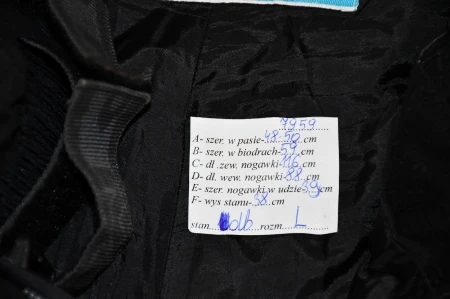 7959
A- szer. w pasie-48-50..cm
B- szer. w biodrach-59..cm
C- dł .zew. nogawki-116.cm
D- dł. wew. nogawki-88..cm
E- szer. nogawki w udzie-39cm
F- wys stanu-38..cm
stan....db....rozm...L......